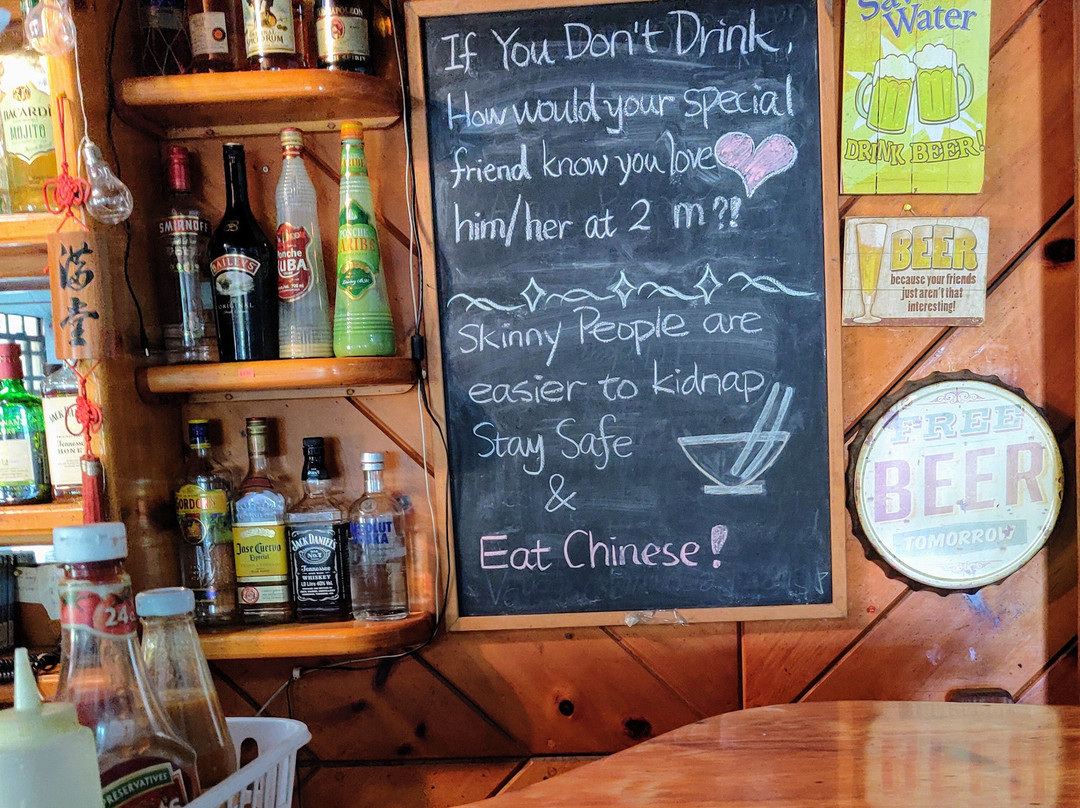 If You Don't Drink,
How would your special
friend know you love
him/her at 2 m?!
Skinny People are
easier to kidnap
Stay Safe
&
Eat Chinese!
Water
DRINK BEER!
BEER
because your friends
just aren't that
interesting!
FREE
BEER
TOMORROW
BACARDI
MOJITO
满
堂
SMIRNOFF
BAILEYS
ORIGINAL
Ponche
KUBA
PONCHE
KUBA
GORDON'S
Jose Cuervo
Especial
JACK DANIEL'S
Tennessee
WHISKEY
ABSOLUT
VODKA
Tennessee
HONEY
PRESERVATIVES